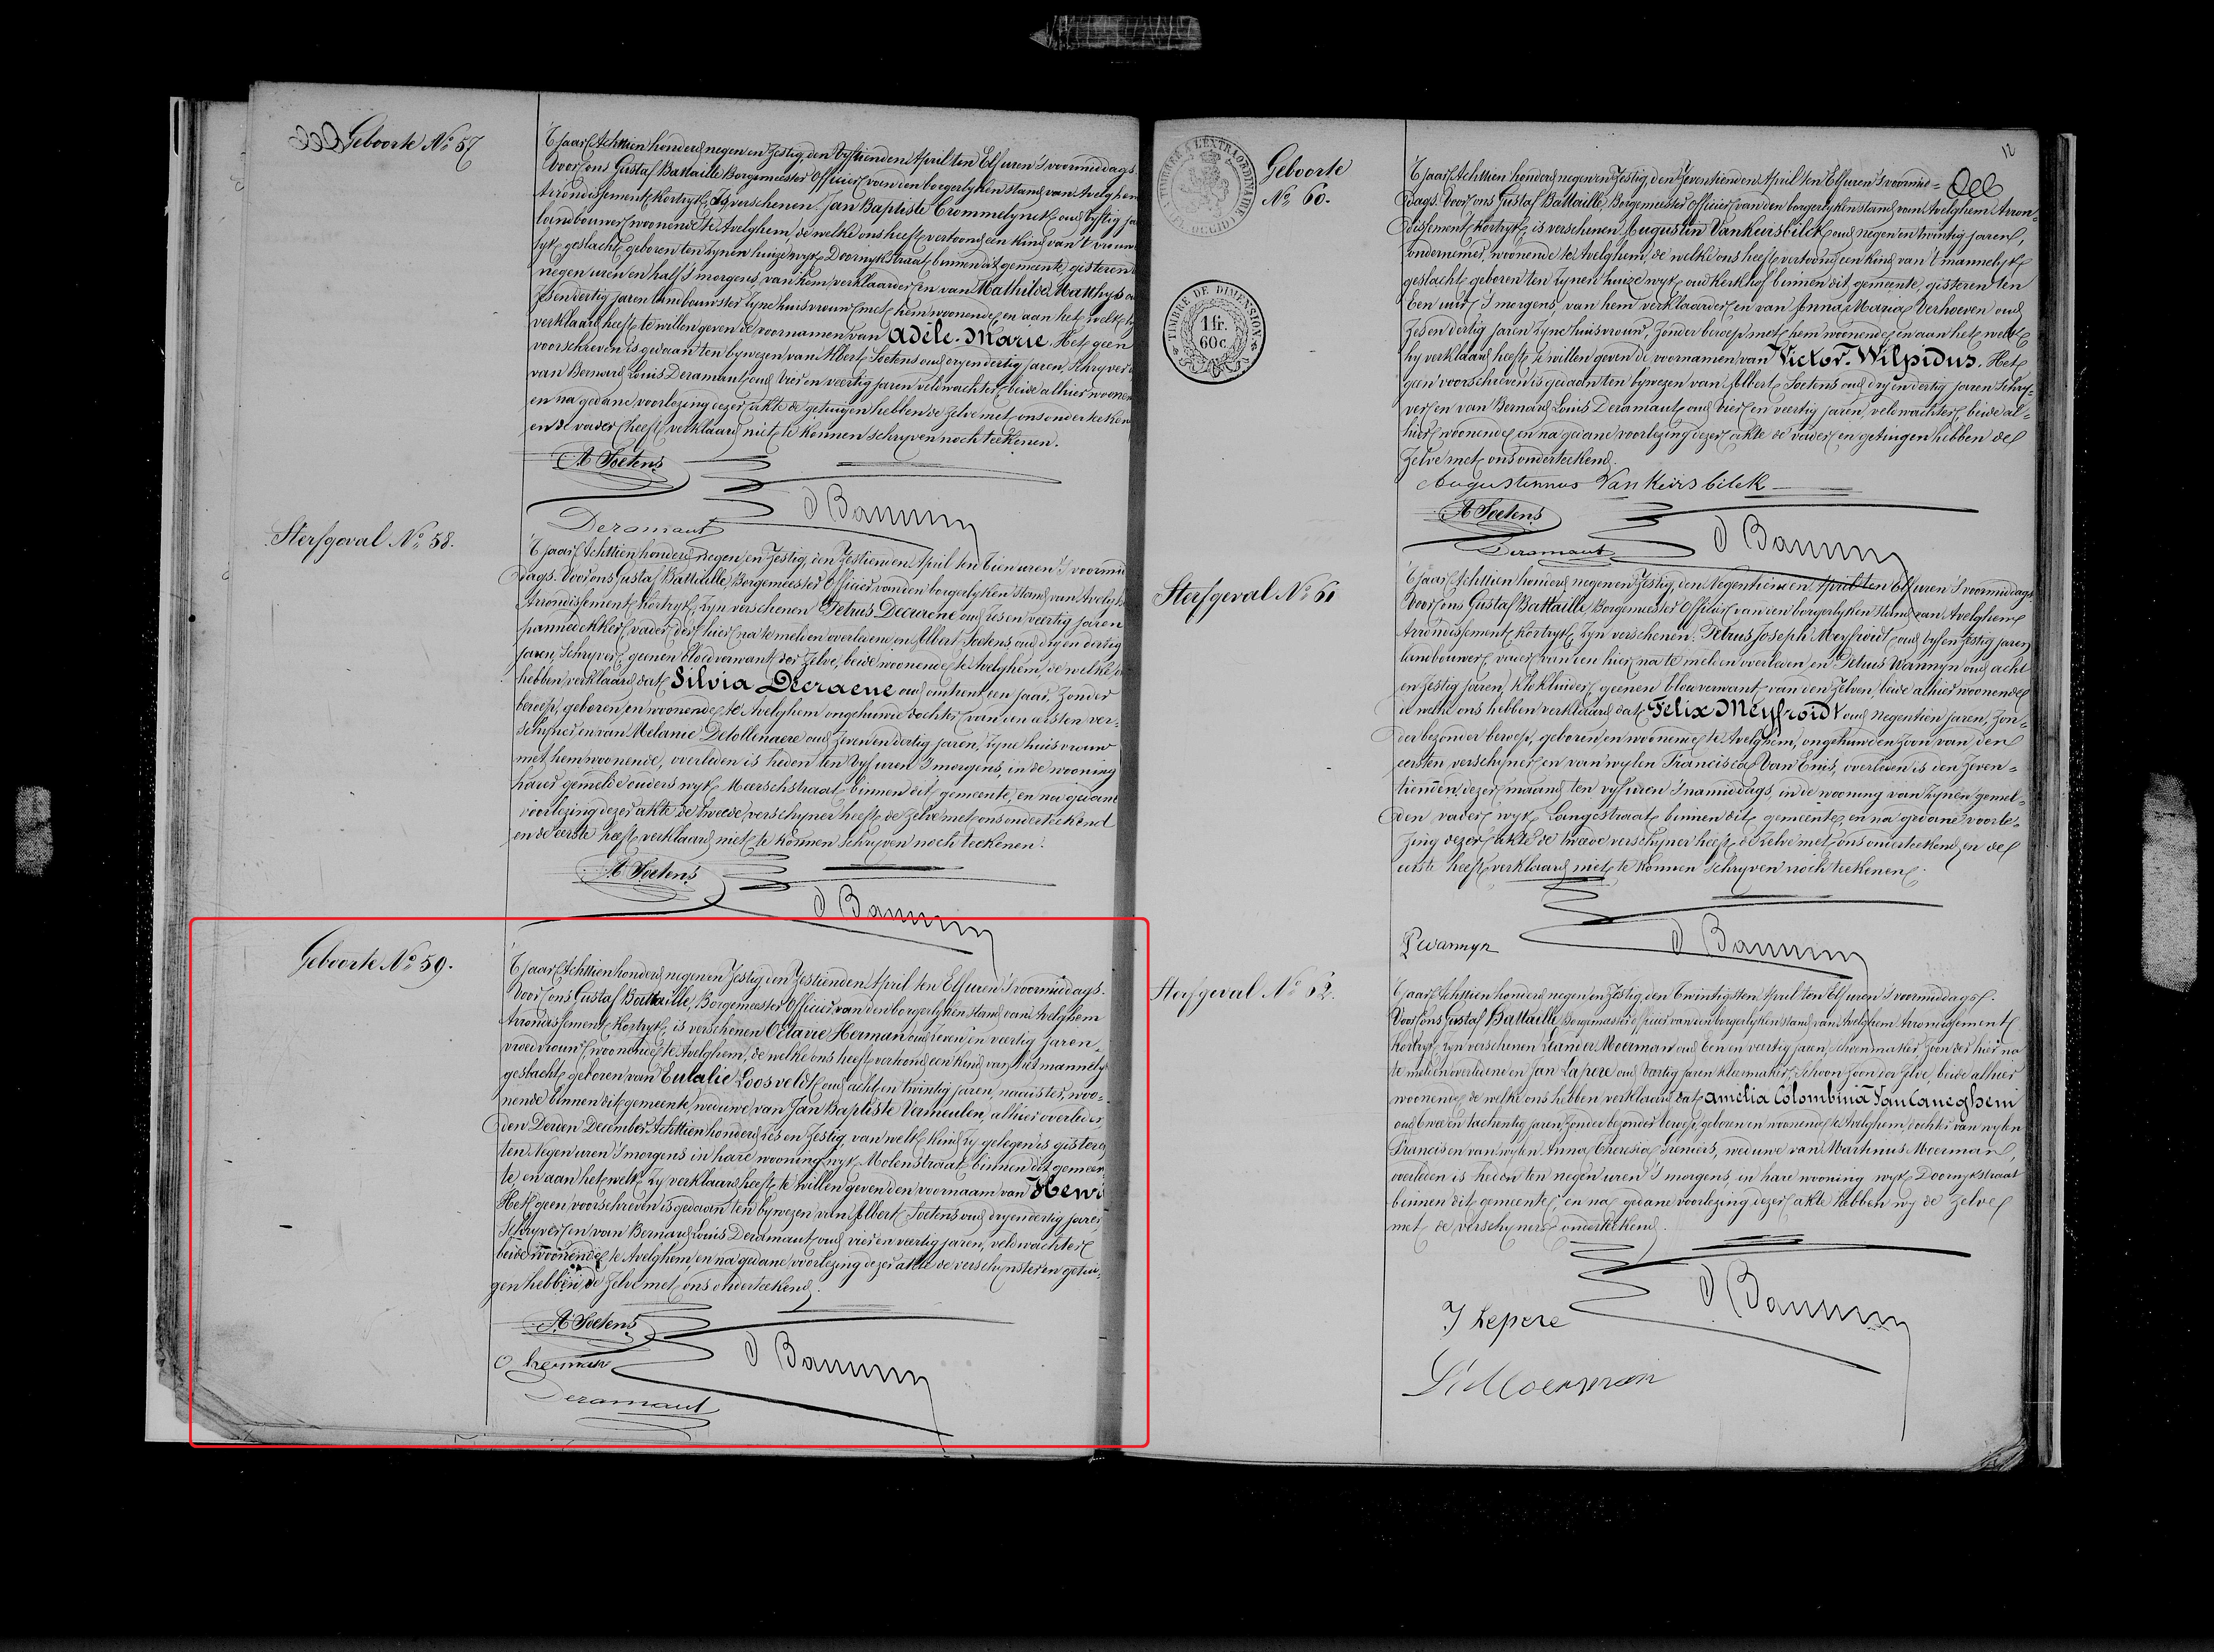 Geboorte No 57
'T jaar Achttien honderd negen en Zestig, den Vyftienden April ten Elf uren 's voormiddags.
Voor ons Gustaf Battaille Borgemeester Officier van den borgerlyken stand van Avelghem
Arrondissement Kortryk, Is verschenen Jan Baptiste Crommelynck oud vyftig
landbouwer woonende te Avelghem, de welke ons heeft vertoond een kind van 't
geslacht geboren ten zynen huize wyk Doornykstraat binnen dit gemeente gisteren
negen uren en half 's morgens, van hem verklaarder en van Mathilde Matthys
zes en dertig jaren landbouwster zyne huisvrouw met hem woonende en aan het welk
verklaard heeft te willen geven de voornamen van Adèle-Marie. Het geen
voorschreven is gedaan ten bywezen van Albert Soetens oud dry en dertig jaren, Schryver
van Bernard Louis Deramaut oud vier en veertig jaren veldwachter beide alhier
en na gedane voorlezing dezer akte de getuigen hebben de zelve met ons
en de vader heeft verklaard niet te konnen schryven noch teekenen.
A Soetens
Deramaut
Sterfgeval No 58.
'T jaar Achttien honderd negen en Zestig, den Zestienden April ten Tien uren 's
dags. Voor ons Gustaf Battaille, Borgemeester Officier van den borgerlyken stand van
Arrondissement Kortryk, Zyn verschenen Petrus Decraene oud zes en veertig jaren
pannedekker, vader der hier na te melden overledene en Albert Soetens, oud dry en dertig
jaren, Schryver, geenen bloedverwant der zelve, beide woonende te Avelghem, de welke
hebben verklaard dat Silvia Decraene oud omtrent een jaar, Zonder
beroep, geboren en woonende te Avelghem ongehuwde dochter van den eersten ver-
schyner en van Melanie Delollenaere oud zeven en dertig jaren, zyne huisvrouw
met hem woonende, overleden is heden ten vyf uren 's morgens, in de wooning
harer gemelde ouders wyk Meerschstraat binnen dit gemeente, en na gedane
voorlezing dezer akte de tweede verschyner heeft de zelve met ons onderteekend
en de eerste heeft verklaard niet te konnen schryven noch teekenen.
A Soetens
Geboorte No 59.
'T jaar Achttien honderd negen en Zestig, den Zestienden April ten Elf uren 's voormiddags.
Voor ons Gustaf Battaille, Borgemeester Officier van den borgerlyken stand van Avelghem
Arrondissement Kortryk, is verschenen Octavie Herman oud zeven en veertig jaren,
vroedvrouw, woonende te Avelghem, de welke ons heeft vertoond een kind van het mannelyk
geslacht, geboren van Eulalie Loosveldt oud acht en twintig jaren, naaister, woo-
nende binnen dit gemeente, weduwe van Jan Baptiste Vermeulen, alhier overleden
den Derden December Achttien honderd zes en Zestig van welk kind zy gelegen is gisteren
ten Negen uren 's morgens in hare wooning wyk Molenstraat binnen dit gemeen-
te, en aan het welk zy verklaard heeft te willen geven den voornaam van Henri
Het geen voorschreven is gedaan ten bywezen van Albert Soetens oud dry en dertig jaren,
Schryver en van Bernard Louis Deramaut oud vier en veertig jaren, veldwachter
beide woonende te Avelghem, en na gedane voorlezing dezer akte de verschynster en getui-
gen hebben de zelve met ons onderteekend.
A Soetens
O herman
Deramaut
12
TIMBRE A L'EXTRAORDINAIRE
TIMBRE DE DIMENSION
1 fr.
60 c.
Geboorte
No 60.
'T jaar Achttien honderd negen en Zestig, den Zeventienden April ten Elf uren 's voormid-
dags. Voor ons Gustaf Battaille, Borgemeester Officier van den borgerlyken stand van Avelghem Arron-
dissement Kortryk, is verschenen Augustin Vankeirsbilck oud negen en twintig jaren,
ondernemer, woonende te Avelghem, de welke ons heeft vertoond een kind van 't mannelyk
geslacht geboren ten zynen huize wyk oud kerkhof binnen dit gemeente, gisteren ten
Een uur 's morgens, van hem verklaarder en van Anna Maria Verhoeven oud
zes en dertig jaren zyne huisvrouw, Zonder beroep met hem woonende en aan het welk
hy verklaard heeft te willen geven de voornamen van Victor-Wilpidus. Het
geen voorschreven is gedaan ten bywezen van Albert Soetens oud dry en dertig jaren Schry-
ver en van Bernard Louis Deramaut oud vier en veertig jaren, veldwachter beide al-
hier woonende en na gedane voorlezing dezer akte de vader en getuigen hebben de
Zelve met ons onderteekend.
Augustinnus Vankeirsbilck
A Soetens
Deramaut
Sterfgeval No 61
'T jaar Achttien honderd negen en Zestig, den Negentienden April ten Elf uren 's voormiddags
Voor ons Gustaf Battaille Borgemeester Officier van den borgerlyken stand van Avelghem
Arrondissement Kortryk, Zyn verschenen, Petrus Joseph Meyfroidt oud vyf en zestig jaren
landbouwer, vader van den hier na te melden overleden en Petrus Wannyn oud acht
en zestig jaren, klokluider, geenen bloedverwant van den zelven, beide alhier woonende
de welke ons hebben verklaard dat Felix Meyfroidt oud negentien jaren, Zon-
der bezonder beroep, geboren en woonende te Avelghem, ongehuwden zoon van den
eersten verschyner en van wylen Francisca Van Enis, overleden is den zeven-
tienden dezer maand ten vyf uren 's namiddags, in de wooning van zynen gemel-
den vader, wyk Langestraat binnen dit gemeente, en na gedane voorle-
zing dezer akte de tweede verschyner heeft de zelve met ons onderteekend en de
eerste heeft verklaard niet te konnen schryven noch teekenen.
P Wannyn
Sterfgeval No 62.
'T jaar Achttien honderd negen en Zestig, den Twintigsten April ten Elf uren 's voormiddags.
Voor ons Gustaf Battaille Borgemeester Officier van den borgerlyken stand van Avelghem Arrondissement
Kortryk Zyn verschenen Leander Moerman oud Een en veertig jaren, schoenmaker, Zoon der hier na
te melden overledene en Jan Lapere oud veertig jaren kleermaker, Schoon zoon der zelve, beide alhier
woonende, de welke ons hebben verklaard dat Amelia Colombina Van Caneghem
oud twee en tachentig jaren Zonder bezonder beroep, geboren en woonende te Avelghem, dochter van wylen
Francis en van wylen Anna Theresia Freniers, weduwe van Martinus Moerman,
overleden is heden ten negen uren 's morgens, in hare wooning wyk Doornykstraat
binnen dit gemeente, en na gedane voorlezing dezer akte hebben wy de zelve
met de verschyners onderteekend.
J Lepere
L. Moerman